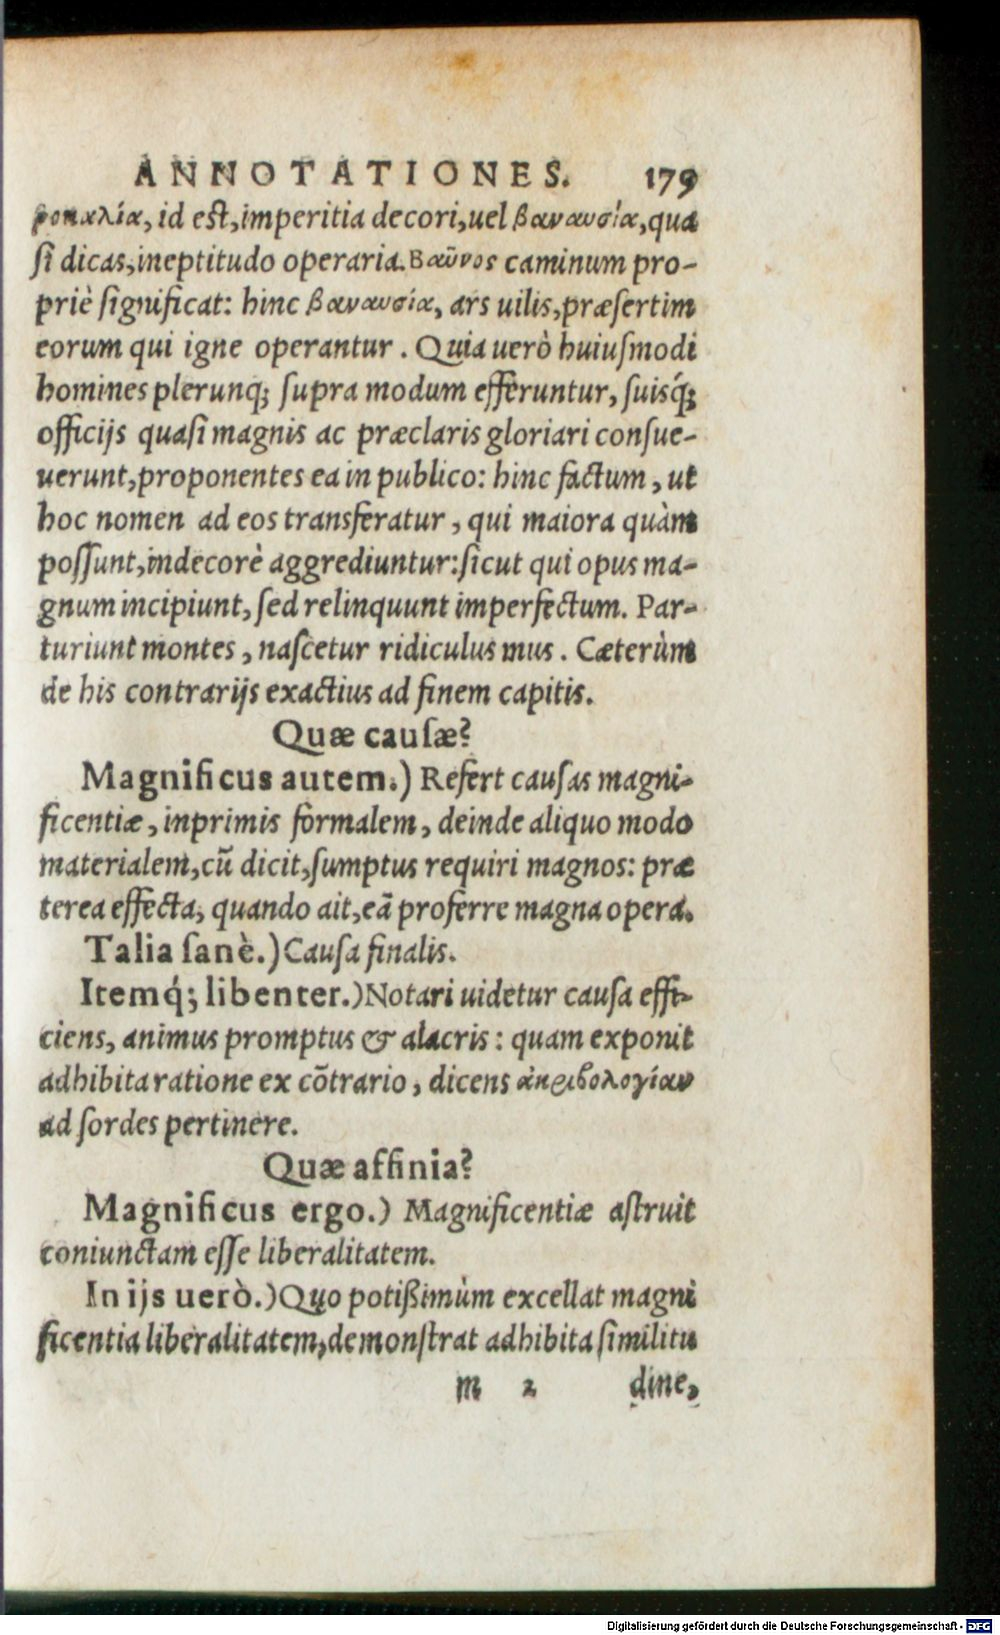 ANNOTATIONES. 179
ροκαλία, id est, imperitia decori, uel βαναυσία, qua
ſi dicas, ineptitudo operaria. Βαῦνος caminum pro-
priè ſignificat: hinc βαναυσία, ars uilis, præſertim
eorum qui igne operantur. Quia uerò huiuſmodi
homines plerunq; ſupra modum efferuntur, ſuisq́;
officijs quaſi magnis ac præclaris gloriari conſue-
uerunt, proponentes ea in publico: hinc factum, ut
hoc nomen ad eos transferatur, qui maiora quàm
poſſunt, indecorè aggrediuntur: ſicut qui opus ma-
gnum incipiunt, ſed relinquunt imperfectum. Par-
turiunt montes, naſcetur ridiculus mus. Cæterùm
de his contrarijs exactius ad finem capitis.
Quæ cauſæ?
Magnificus autem.) Refert cauſas magni-
ficentiæ, inprimis formalem, deinde aliquo modo
materialem, cũ dicit, ſumptus requiri magnos: præ
terea effecta, quando ait, eã proferre magna opera.
Talia ſanè.) Cauſa finalis.
Itemq́; libenter.) Notari uidetur cauſa effi-
ciens, animus promptus & alacris: quam exponit
adhibita ratione ex cõtrario, dicens ἀκριβολογίαν
ad ſordes pertinere.
Quæ affinia?
Magnificus ergo.) Magnificentiæ aſtruit
coniunctam eſſe liberalitatem.
In ijs uerò.) Quo potiſsimùm excellat magni
ficentia liberalitatem, demonſtrat adhibita ſimilitu
m 2 dine,
Digitalisierung gefördert durch die Deutsche Forschungsgemeinschaft - DFG